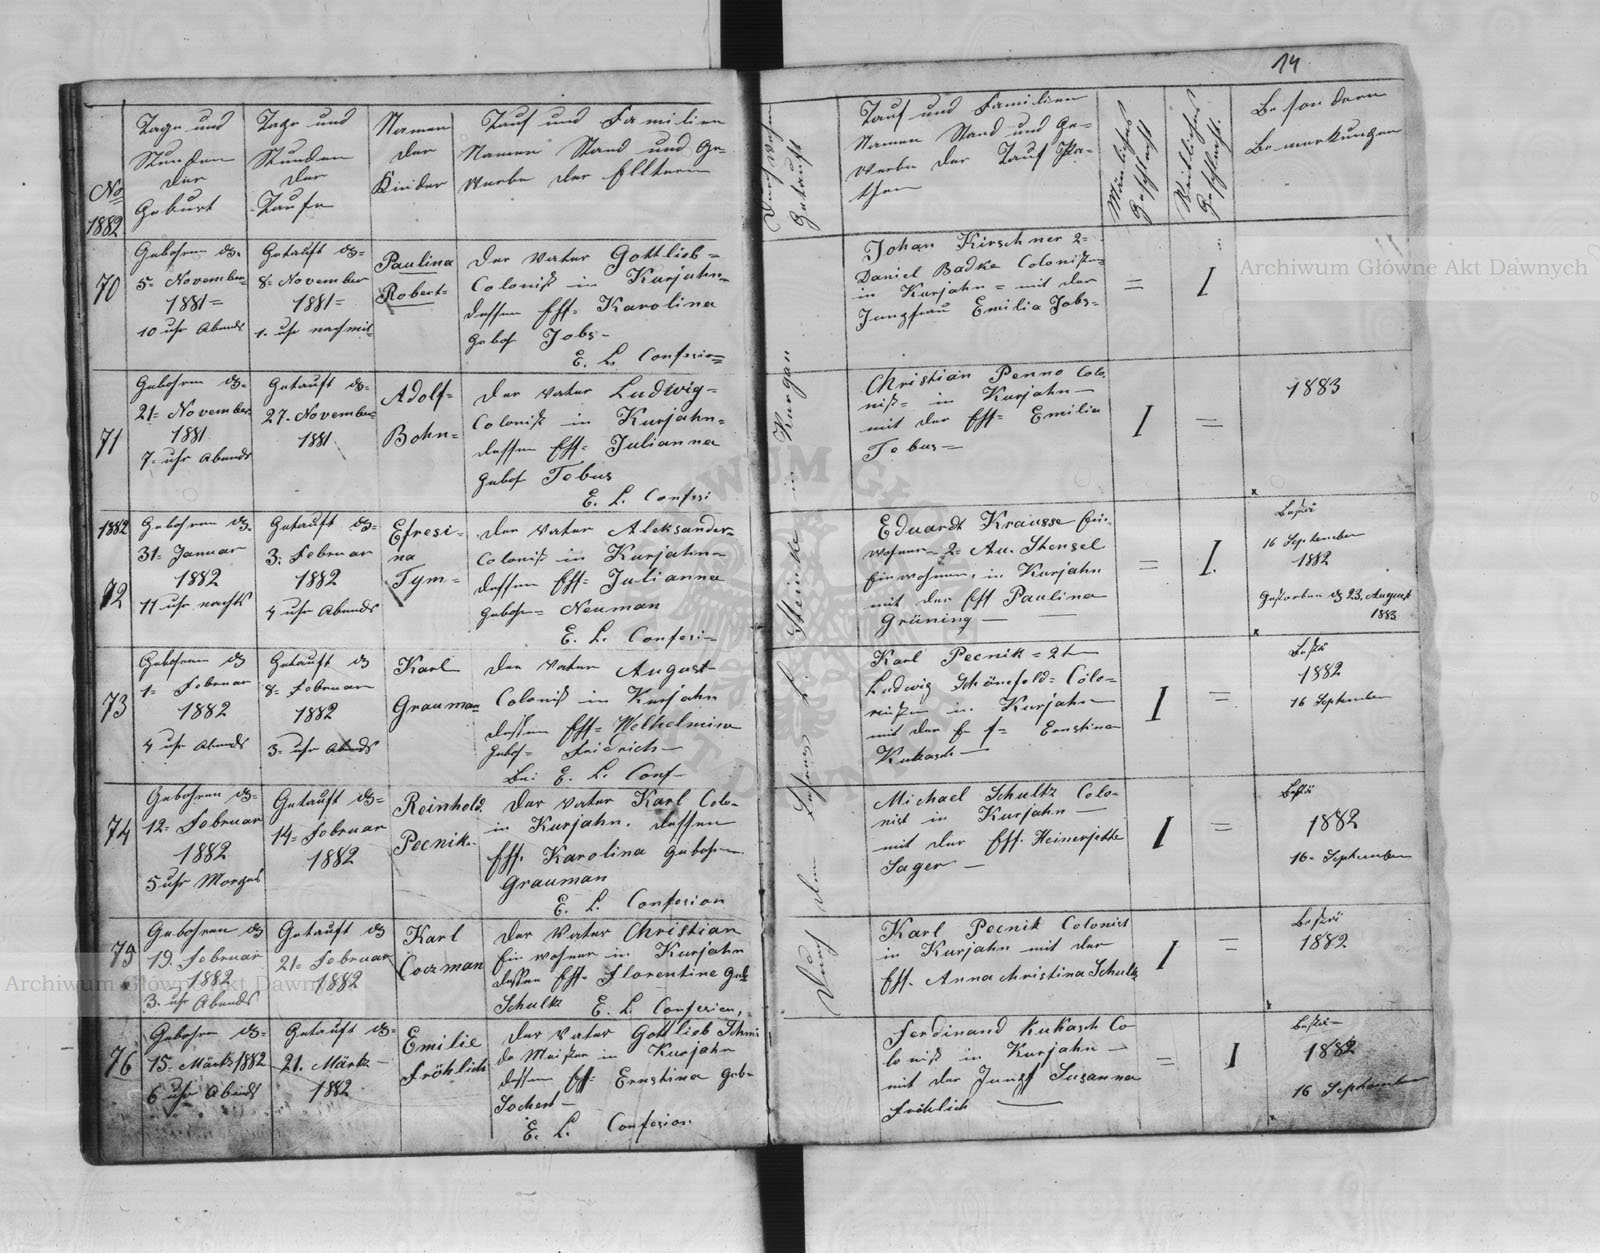 14
No
1882
Tage und
Stunden
der
Geburt
Tage und
Stunden
der
Taufe
Namen
der
Kinder
Tauf und Familien
Namen Stand und Ge=
werbe der Elltern
Getauft
Tauf und Familien
Namen Stand und Ge=
werbe der Tauf Pa=
then
Männliches
Geschlecht
Weibliches
Geschlecht.
Besondern
Bemerkungen
70
Gebohren d=
5= November=
1881=
10 uhr Abends
Getauft d=
8= November
1881=
1. uhr nachmit=
Paulina
Robert=
der Vater Gottlieb=
Colonist in Kurjahn=
dessen Eff= Karolina
geboh Jobs-
E. L. Confesion=
Johan Kirschner 2=
Daniel Badke Colonisten=
in Kurjahn= mit der
Jungfrau Emilia Jobs=
=
I
71
Gebohren d=
21= November
1881
7= uhr Abends
Getauft d=
27. November=
1881
Adolf=
Bohn=
der Vater Ludwig=
Colonist in Kurjahn=
dessen Eff= Julianna
geboh Tobus
E. L. Confesi
Christian Penno Colo
nist= in Kurjahn—
mit der Eff= Emilia
Tobus—
I
=
1883
1882
72
Gebohren d.
31= Januar
1882
11 uhr nachts
Getauft d=
3. Februar
1882
4 uhr Abends
Efresi-
na
Tym=
der Vater Aleksander=
Colonist in Kurjahn=
dessen Eff= Julianna
gebohr= Neuman
E. L. Confesi-
Eduardt Krausse Ein-
wohner 2= Au. Stensel
Einwohner, in Kurjahn
mit der Eff Paulina
Grüning—
=
I.
16 September
1882
Gestorben d 23. August
1883
73
Gebohren d
1= Februar
1882
4 uhr Abends
Getauft d
8= Februar
1882
3= uhr Abends
Karl
Grauman
der Vater August
Colonist in Kurjahn
dessen Eff= Welhelmina
geboh= Friedrich—
E. L. Conf-
Karl Pecnik= 2t
Ludwig Schönefeld= Colo=
nisten in Kurjahn
mit der Ef f= Ernstina
Kukasch—
I
=
1882
16 September
74
Gebohren d=
12= Februar
1882
5 uhr Morgens
Getauft d=
14= Februar
1882
Reinhold
Pecnik.
der Vater Karl Colo-
in Kurjahn. dessen
Eff. Karolina gebohren.
Grauman
E. L. Confesion
Michael Schultz Colo-
nist in Kurjahn—
mit der Eff. Heinerjette
Sager—
I
=
1882
16= September
75
Gebohren d
19. Februar
1882
3. uhr Abends
Getauft d
21= Februar
1882
Karl
Coczman
der Vater Christian
Einwohner in Kurjahn
dessen Eff= Florentine geb
Schultz E. L. Confesion,
Karl Pecnik Colonist
in Kurjahn mit der
Eff. Anna Christina Schultz
I
=
1882
76
Gebohren d=
15= Märtz 1882
6 uhr Abends
Getauft d=
21. Märtz—
1882
Emilie
Fröhlich
der Vater Gottlieb Schmi
de Meister in Kurjahn
dessen Eff= Ernstina geb=
Sochert—
E. L. Confesion.
Ferdinand Kukasch Co
lonist in Kurjahn—
mit der Jungf Susanna
Fröhlich—
=
I
1882
16 September
Steinke in Kurgan
Archiwum Główne Akt Dawnych
Archiwum Główne Akt Dawnych